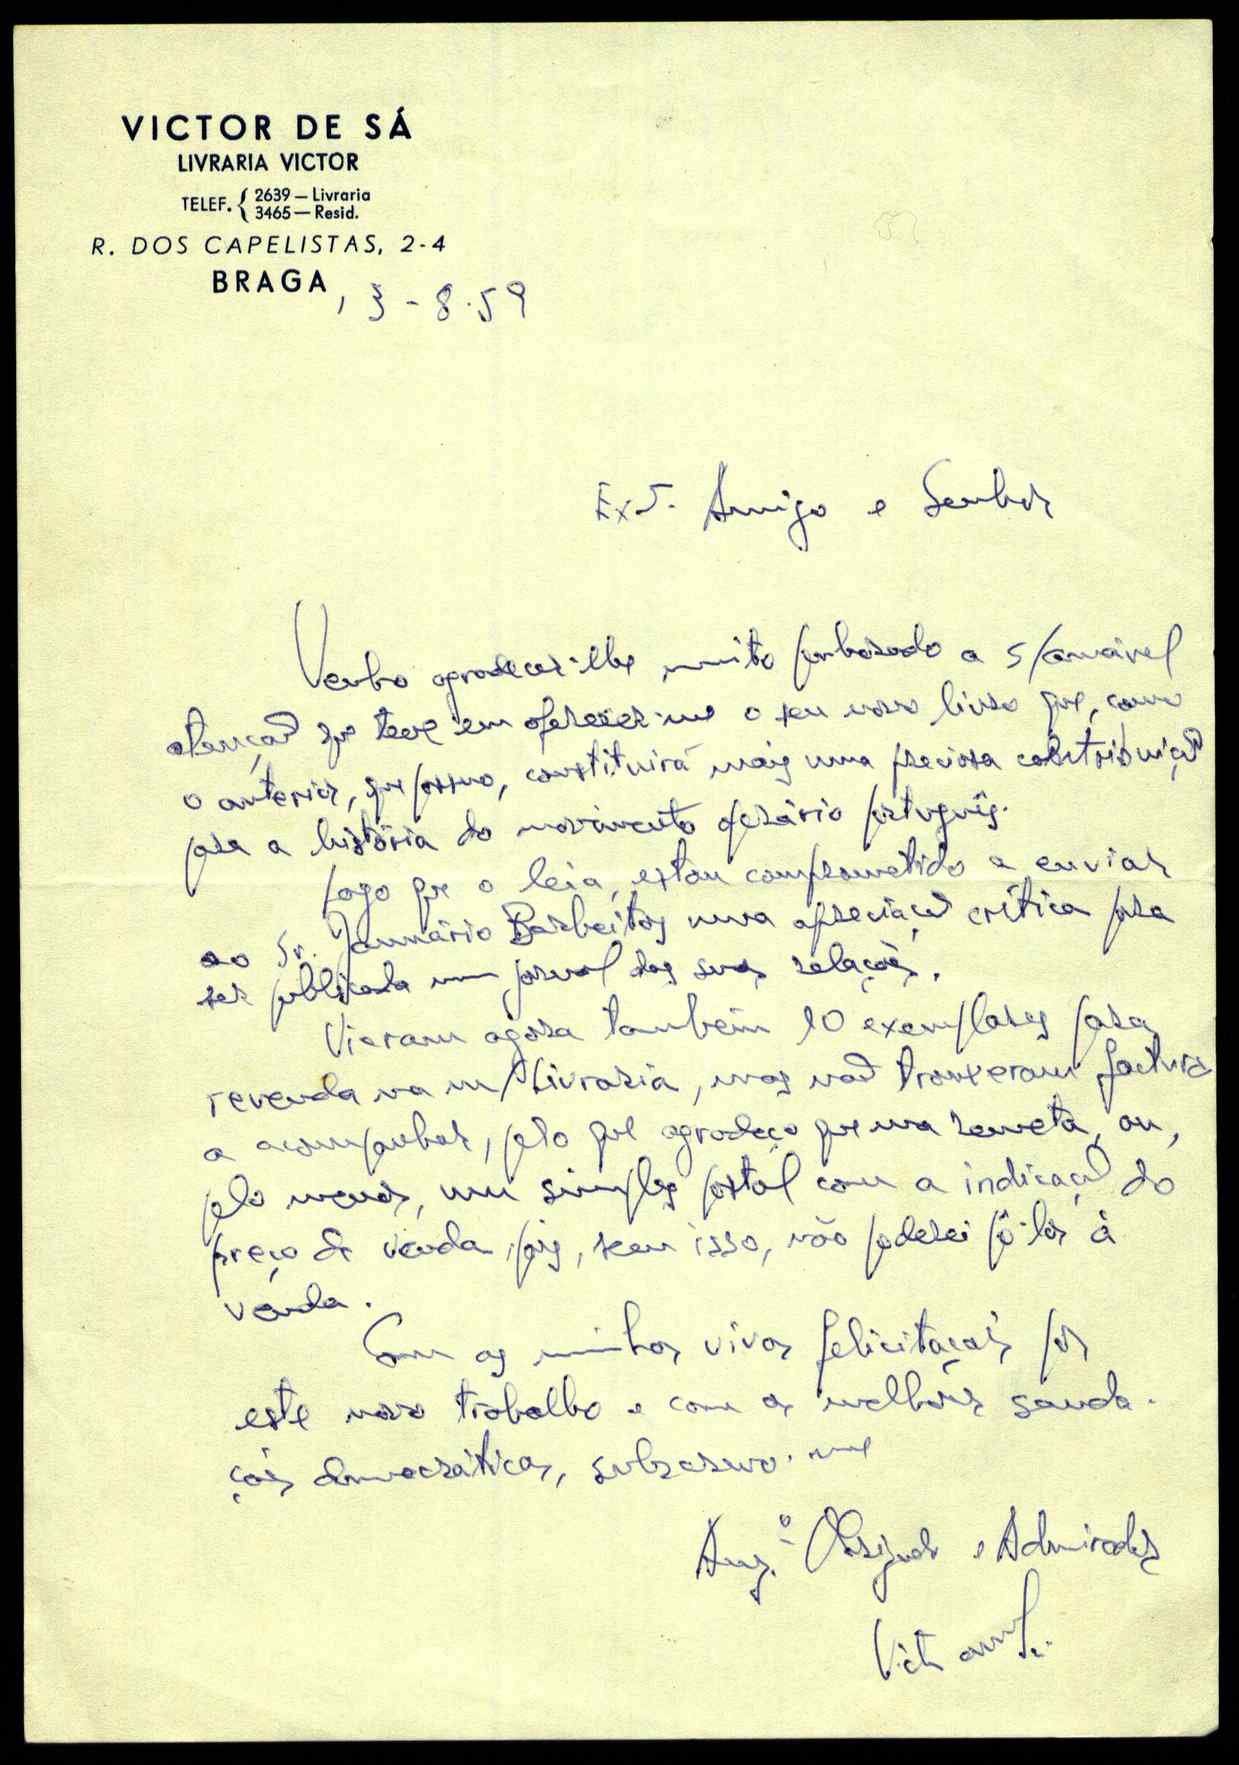 VICTOR DE SÁ
LIVRARIA VICTOR
TELEF. { 2639 — Livraria
3465 — Resid.
R. DOS CAPELISTAS, 2-4
BRAGA, 3-8-59
Amigo e Senhor
Venho agradecer-lhe muito penhorado a s/amável
atenção que teve em oferecer-me o seu novo livro que, como
o anterior, que possuo, constituirá mais uma preciosa contribuição
para a história do movimento operário português.
Logo que o leia, estou comprometido a enviar
ao Sr. Januário Barbeitos uma apreciação crítica para
ser publicada num jornal das suas relações.
Vieram agora também 10 exemplares para
revenda na m/ Livraria, mas não trouxeram factura
a acompanhar, pelo que agradeço que ma remeta, ou,
pelo menos, um simples postal com a indicação do
preço de venda, pois, sem isso, não poderei pô-los à
venda.
Com as minhas vivas felicitações por
este novo trabalho e com as melhores sauda-
ções democráticas, subscrevo-me
Amº. Obrigado e Admirador